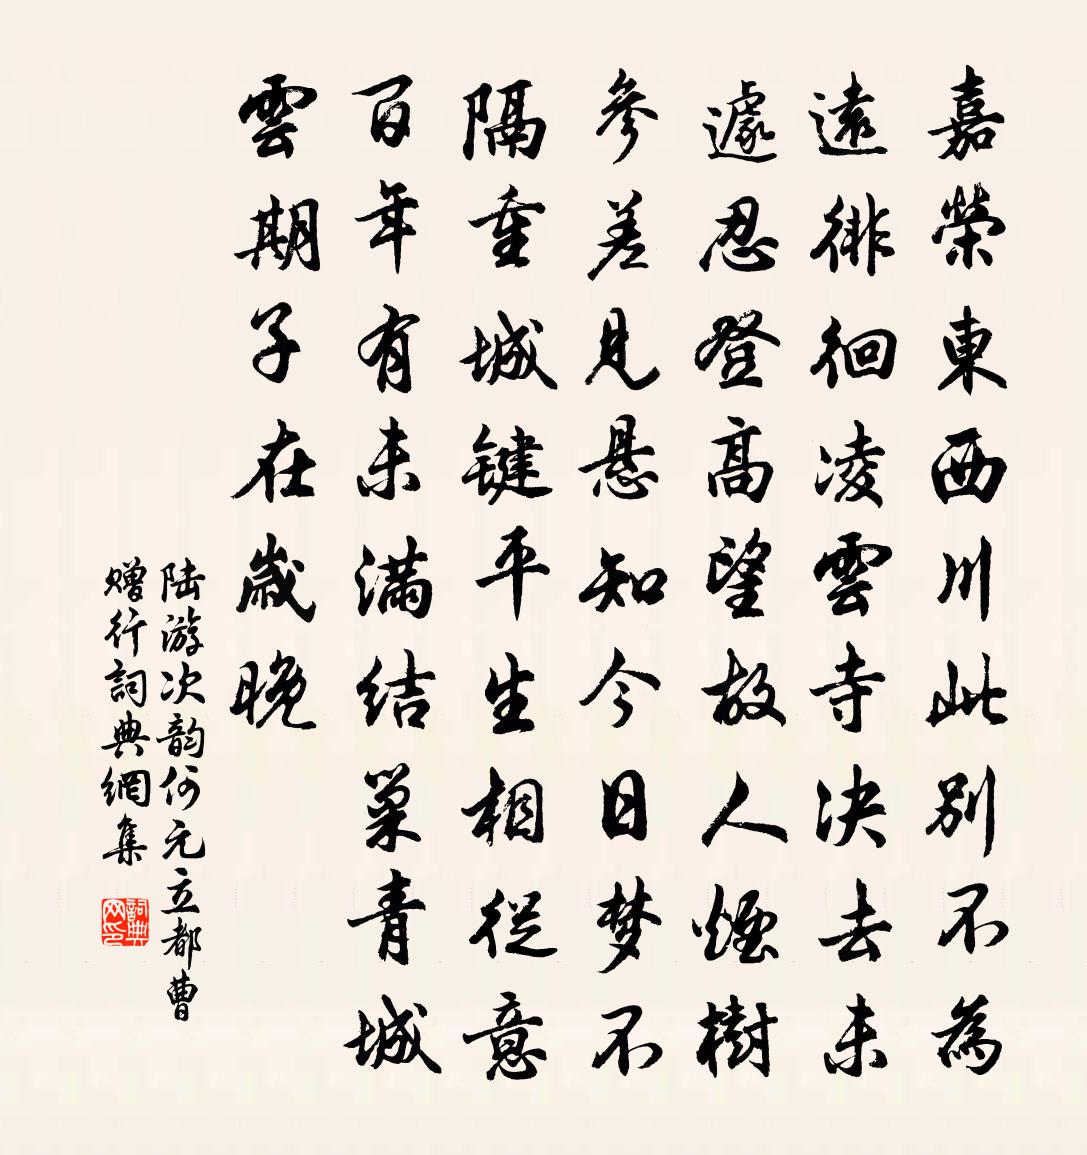 嘉榮東西川此別不為
遠徘徊凌雲寺決去未
遽忍登高望故人煙樹
參差見悬知今日梦不
隔重城键平生相從意
百年有未满结巢青城
雲期子在歲晚
陆游次韵何元立都曹
赠行詞典網集
詞典网印